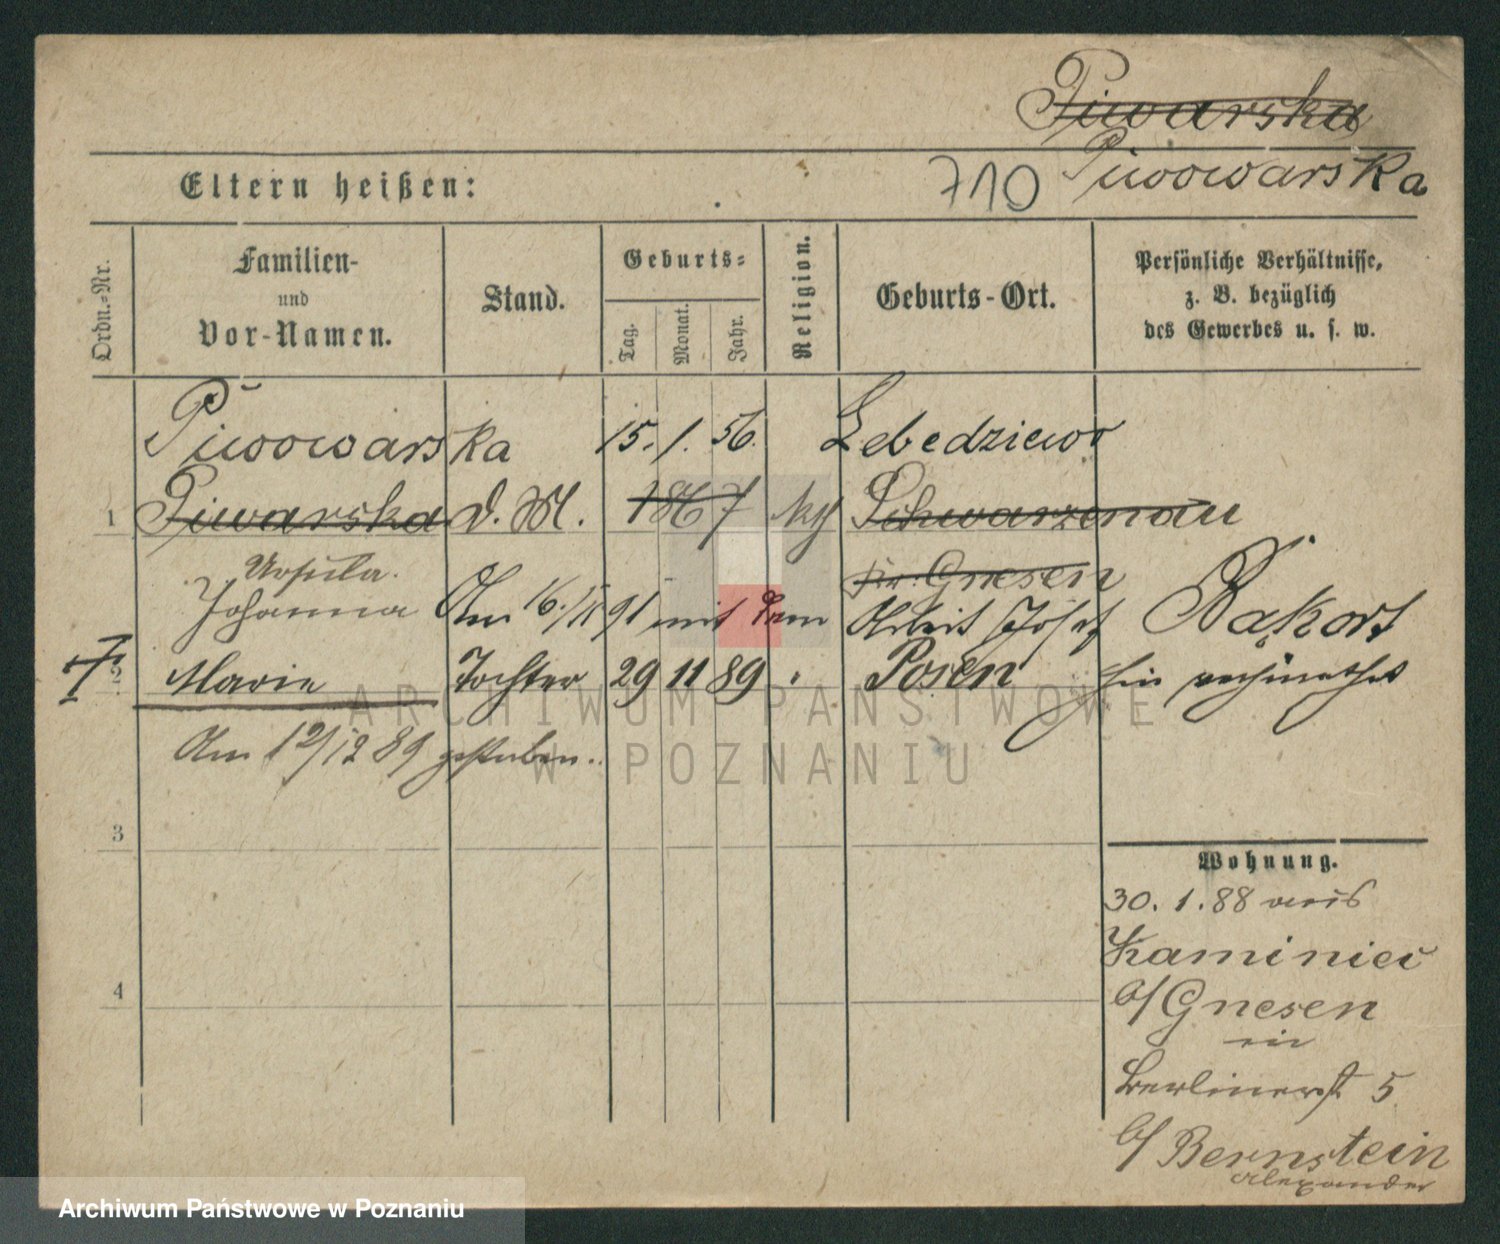 Piwarska
Eltern heißen:
710 Piwowarska
Ordn.-Nr.
Familien-
und
Vor-Namen.
Stand.
Geburts-
Tag.
Monat.
Jahr.
Religion.
Geburts-Ort.
Persönliche Verhältnisse,
z. B. bezüglich
des Gewerbes u. s. w.
Piwowarska 15. 1. 56. Lebedziewo
1 Piwarska d. M. 1867 kath Schwarzenau
Ursula. Kr. Gnesen
Johanna Am 16./11 91 mit dem Arbeit Josef Bąkort
2 Marie Tochter 29 11 89 " Posen hier verheirathet
Am 12/12 89 gestorben.
3
4
Wohnung.
30. 1. 88 aus
Kaminiec
b/ Gnesen
in
Berlinerst 5
b/ Bernstein
Alexander
ARCHIWUM PAŃSTWOWE
W POZNANIU
Archiwum Państwowe w Poznaniu